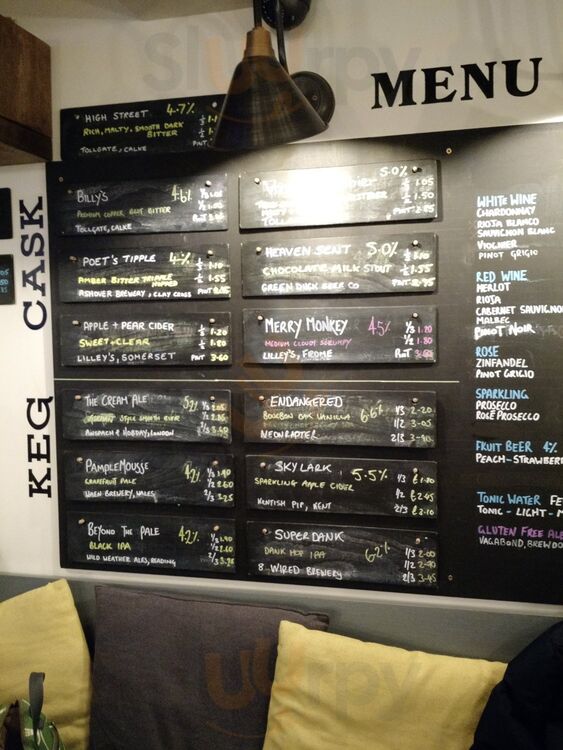 MENU
CASK
KEG
HIGH STREET 4.7%
RICH, MALTY, SMOOTH DARK
BITTER
TOLLGATE, CALKE
PINT
BILLY'S 4.6%
PREMIUM COPPER BEST BITTER
TOLLGATE, CALKE
5.0%
1.05
1.50
PINT 2.95
POET'S TIPPLE 4%
AMBER BITTER TRIPPLE
HOPPED
ASHOVER BREWERY, CLAY CROSS
1.10
1.55
PINT 2.95
HEAVEN SENT 5.0%
CHOCOLATE MILK STOUT
GREEN DUCK BEER CO
1.10
1.55
PINT 2.95
APPLE + PEAR CIDER
SWEET + CLEAR
LILLEY'S, SOMERSET
1.20
1.80
PINT 3.60
MERRY MONKEY 4.5%
MEDIUM CLOUDY SCRUMPY
LILLEY'S, FROME
1/3 1.20
1/2 1.80
PINT 3.60
THE CREAM ALE
STYLE SMOOTH BITTER
ANSPACH & HOBDAY, LONDON
ENDANGERED 6.6%
BOURBON OAK VANILLA
NEON RAPTER
1/3 2.20
1/2 3.05
2/3 3.90
PAMPLEMOUSSE 4.2%
GRAPEFRUIT PALE
WAEN BREWERY, WALES
1/3 1.90
1/2 2.60
2/3 3.25
SKYLARK 5.5%
SPARKLING APPLE CIDER
KENTISH PIP, KENT
1/3 £1.80
1/2 £2.45
2/3 £3.10
BEYOND THE PALE 4.2%
BLACK IPA
WILD WEATHER ALES, READING
1/3 1.90
1/2 2.60
2/3 3.25
SUPERDANK 6.2%
DANK HOP IPA
8 WIRED BREWERY
1/3 2.00
1/2 2.70
2/3 3.45
WHITE WINE
CHARDONNAY
RIOJA BLANCO
SAUVIGNON BLANC
VIOGNIER
PINOT GRIGIO
RED WINE
MERLOT
RIOJA
CABERNET SAUVIGNO
MALBEC
PINOT NOIR
ROSE
ZINFANDEL
PINOT GRIGIO
SPARKLING
PROSECCO
ROSE PROSECCO
FRUIT BEER 4%
PEACH - STRAWBER
TONIC WATER FE
TONIC - LIGHT - M
GLUTEN FREE AL
VAGABOND, BREWDO